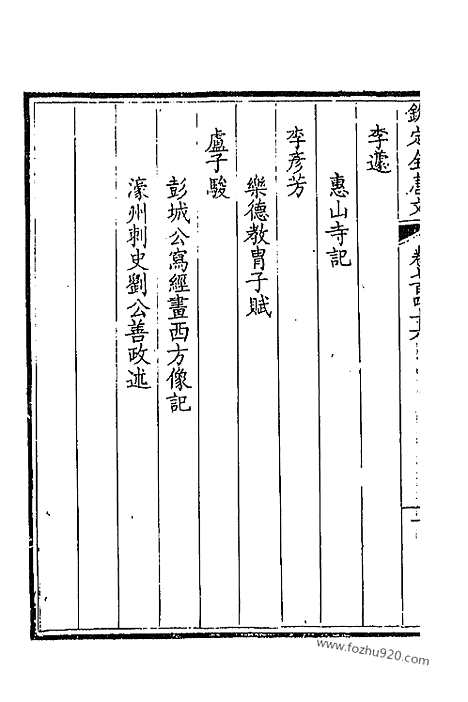 欽定全唐文 卷七百四十六
李蘧
惠山寺記
李彥芳
樂德教胄子賦
盧子駿
彭城公寫經畫西方像記
濠州刺史劉公善政述
www.fozhu920.com